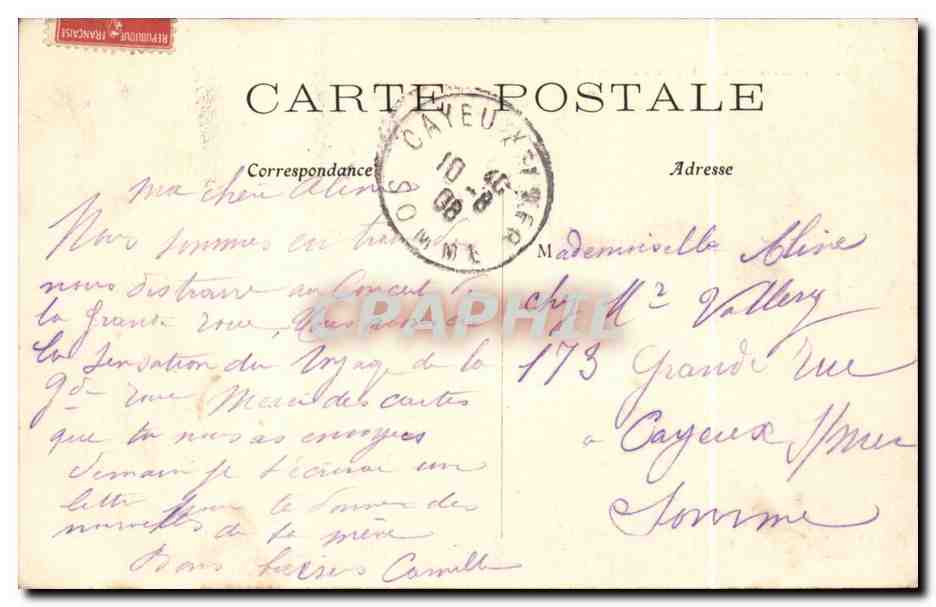 REPUBLIQUE FRANÇAISE
CARTE POSTALE
Correspondance
Adresse
CAYEUX-SUR-MER
10 -8 08
SOMME
Ma chère Aline
Nous sommes en train de
nous distraire au Concert de
la Grande roue, Nous avons
la sensation du Voyage de la
Gde roue Merci des cartes
que tu nous as envoyées
demain je t'écrirai une
lettre pour te donner des
nouvelles de ta mère
Bons baisers Camille
Mademoiselle Aline
chez Mr Vallery
173 Grande rue
a Cayeux s/mer
Somme
CPAPHIL